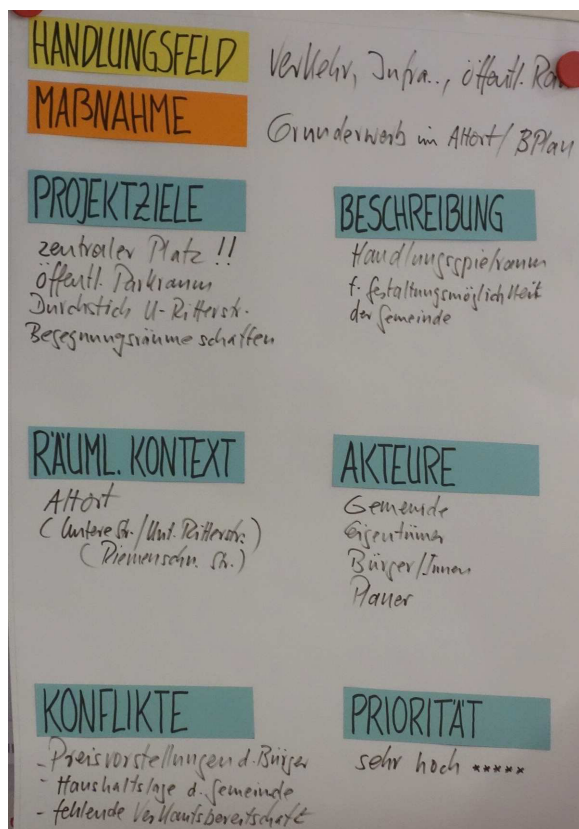 HANDLUNGSFELD
Verkehr, Infra.., öffentl. Raum
MAßNAHME
Grunderwerb im Altort / BPlan
PROJEKTZIELE
zentraler Platz !!
öffentl. Parkraum
Durchstich U-Ritterstr.
Begegnungsräume schaffen
BESCHREIBUNG
Handlungsspielraum
f. Gestaltungsmöglichkeit
der Gemeinde
RÄUML. KONTEXT
Altort
(Untere Str. / Unt. Ritterstr.)
(Riemenschn. Str.)
AKTEURE
Gemeinde
Eigentümer
Bürger/Innen
Planer
KONFLIKTE
- Preisvorstellungen d. Bürger
- Haushaltslage d. Gemeinde
- fehlende Verkaufsbereitschaft
PRIORITÄT
sehr hoch *****